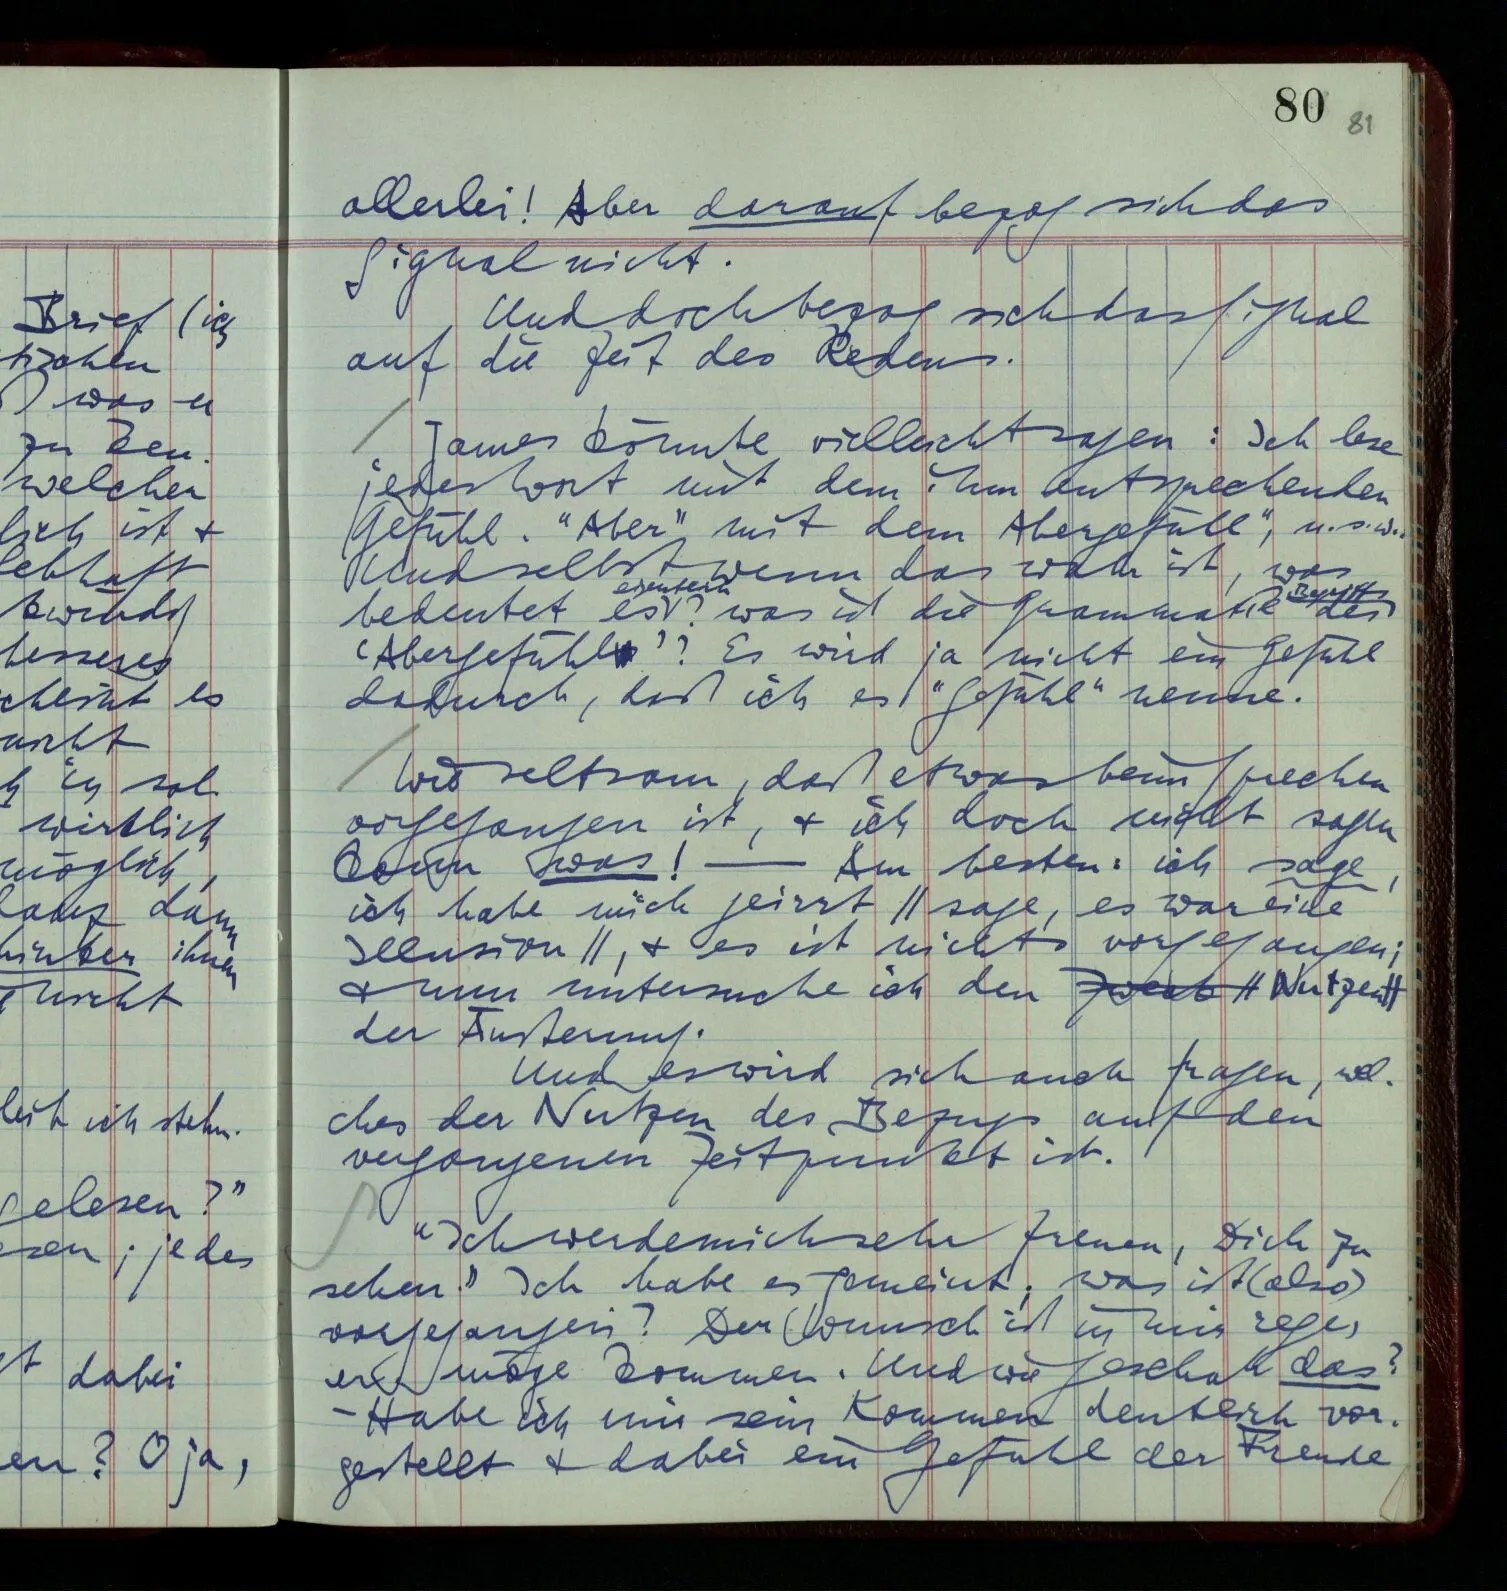 Brief (ich
was
zu
welcher
lich ist &
lebhaft
besseres
scheint es
nicht
wirklich
möglich,
dann
hinter ihnen
nicht
ich stehn.
gelesen?"
; jedes
dabei
? O ja,
80
81
allerlei! Aber darauf bezog sich das
Signal nicht.
Und doch bezog sich das Signal
auf die Zeit des Redens.
/ James könnte vielleicht sagen: Ich lese
jedes Wort mit dem ihm entsprechenden
Gefühl. "Aber" mit dem Abergefühl", u.s.w..
Und selbst wenn das wahr ist, was
bedeutet es eigentlich? was ist die Grammatik des Begriffs
'Abergefühl'? Es wird ja nicht ein Gefühl
dadurch, daß ich es "Gefühl" nenne.
/ Wie seltsam, daß etwas beim Sprechen
vorgegangen ist, & ich doch nicht sagen
kann was! — Am besten: ich sage,
ich habe mich geirrt // sage, es war eine
Illusion //, & es ist nichts vorgegangen;
& nun untersuche ich den Zweck // Nutzen //
der Äußerung.
Und es wird sich auch fragen, wel-
ches der Nutzen des Bezugs auf den
vergangenen Zeitpunkt ist.
"Ich werde mich sehr freuen, Dich zu
sehen." Ich habe es gemeint; was ist (also)
vorgegangen? Der Wunsch ist in mir rege,
er möge kommen. Und wie geschah das?
– Habe ich mir sein Kommen deutlich vor-
gestellt & dabei ein Gefühl der Freude